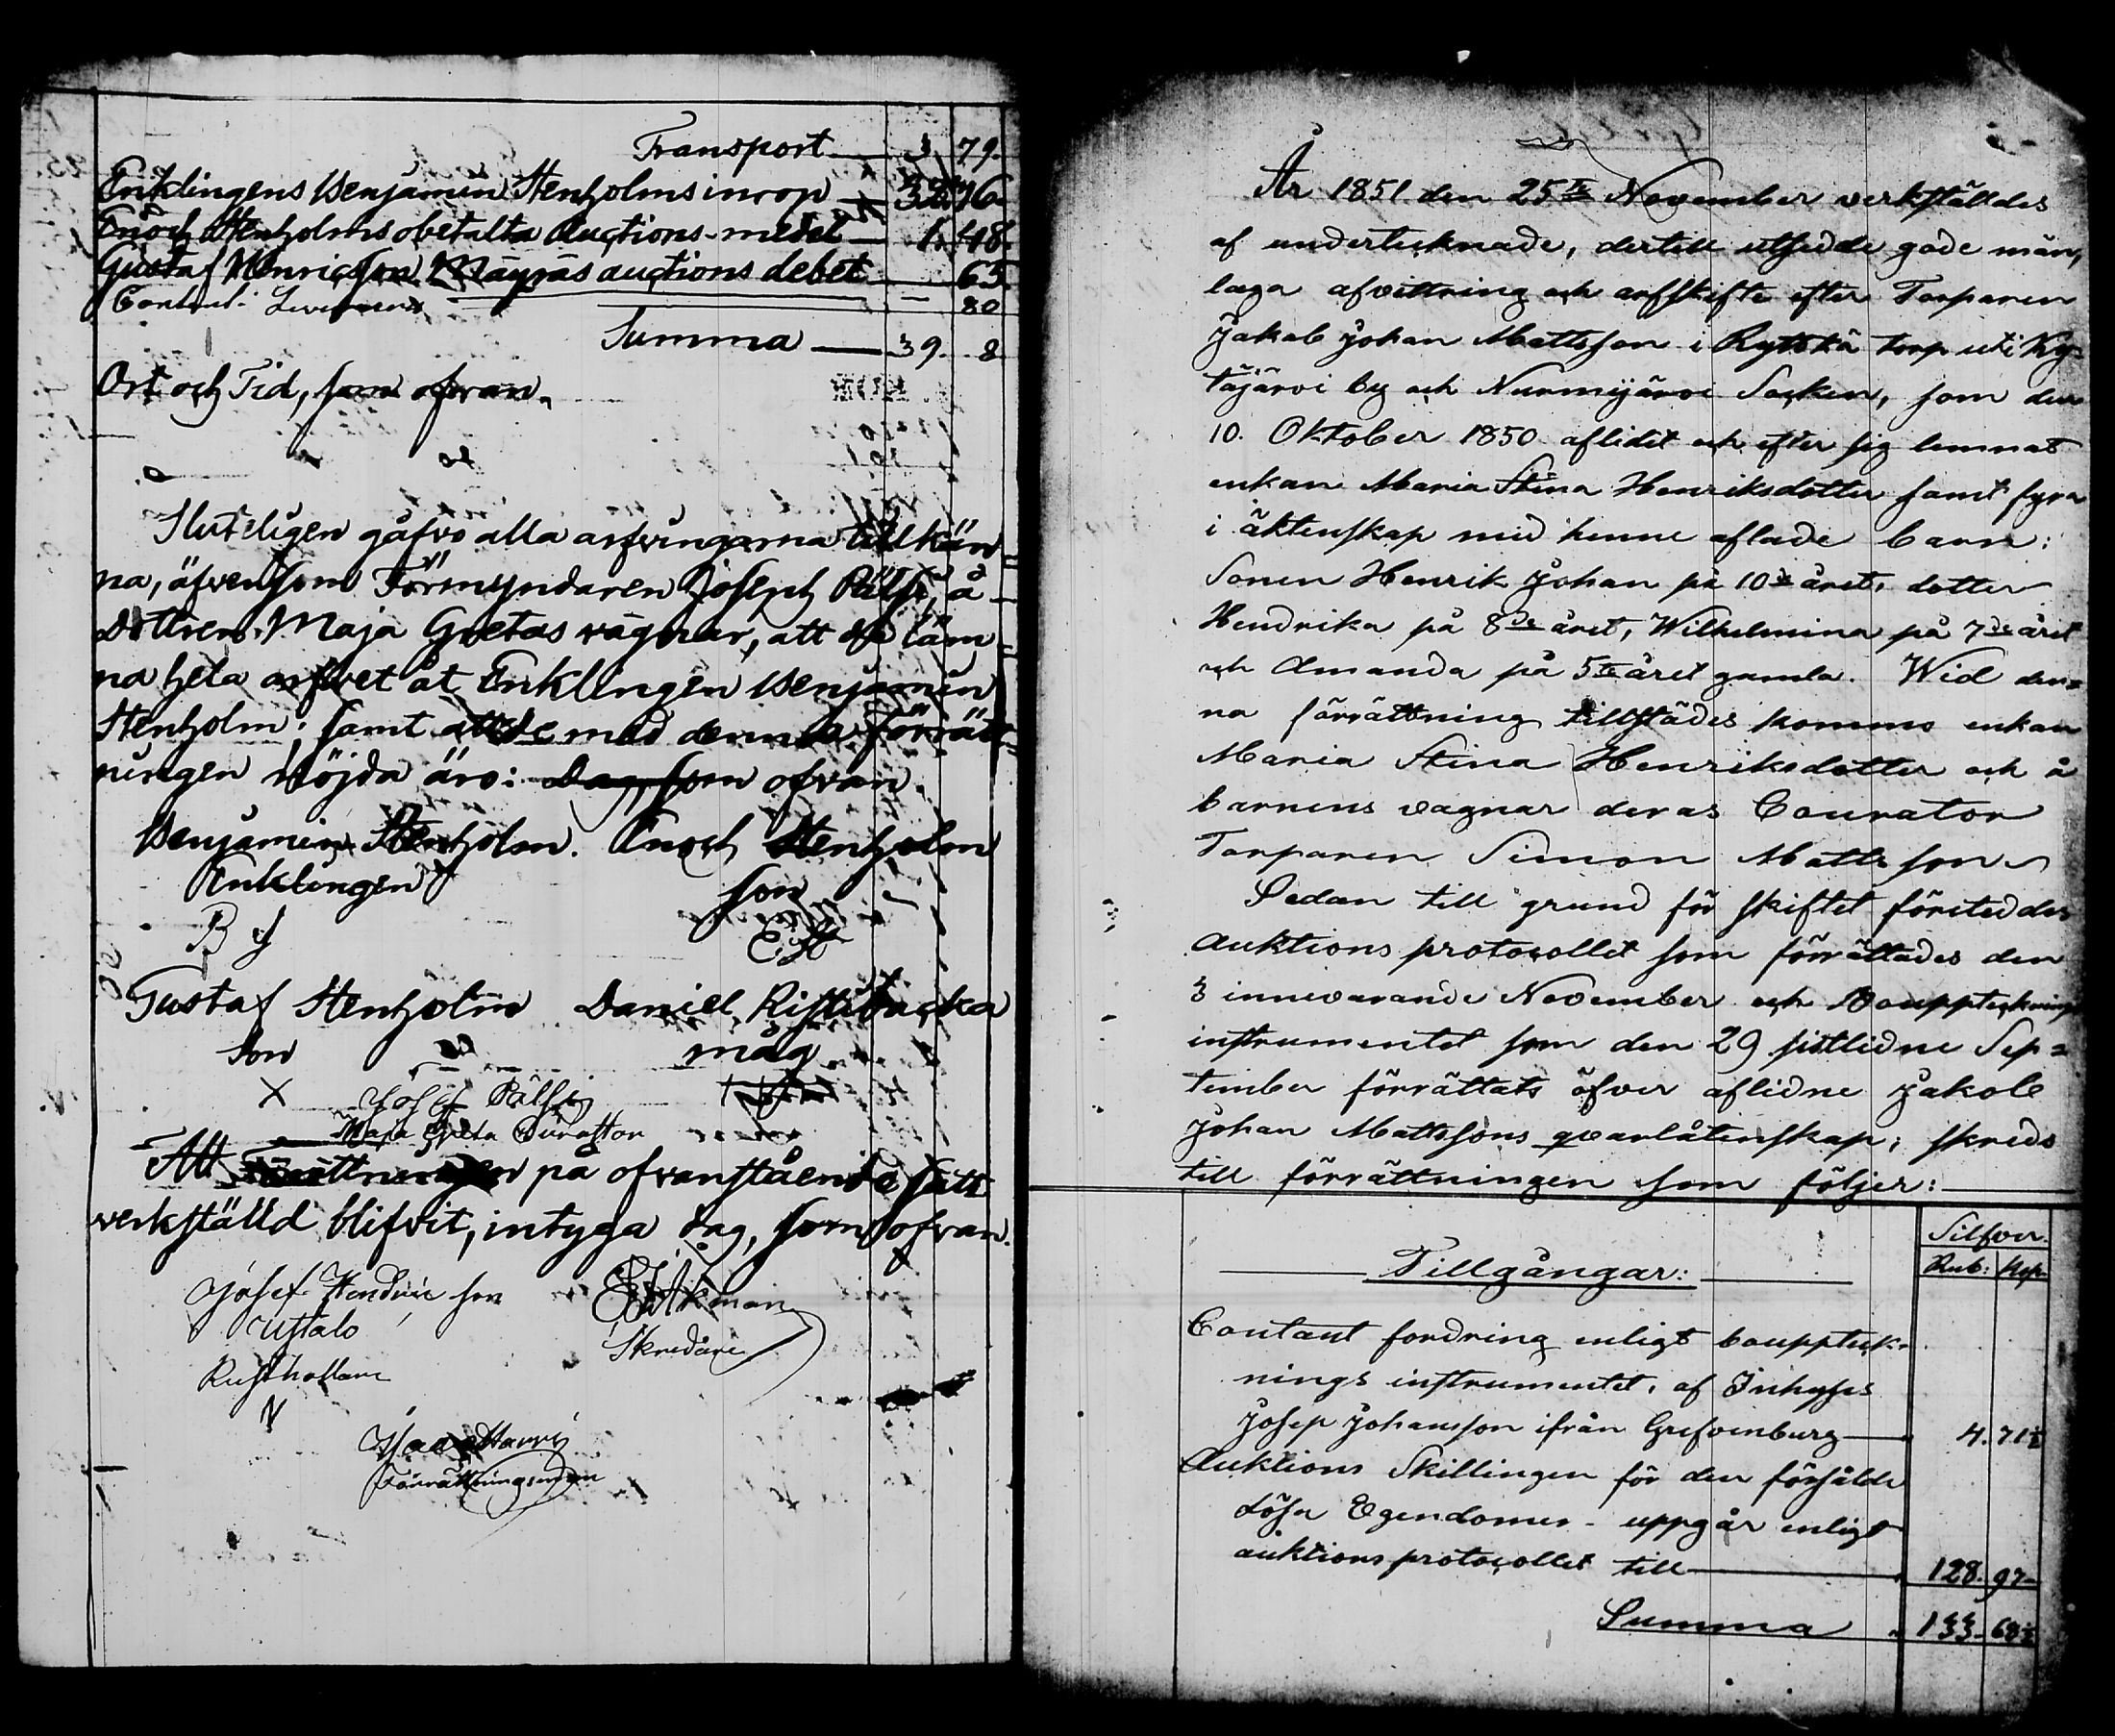 Transport 3 79.
Enklingens Benjamin Stenholms inrop 32 16.
Enoch Stenholms obetalta Auctions-medel 1. 48.
Gustaf Henricsson Mäyräs auctions debet 65.
Contant 80
Summa 39. 8
Ort och Tid, som ofvan.
Sluteligen gåfvo alla arfvingarna tillkän-
na, äfvensom Förmyndaren Joseph Pälsi, å
Dottren Maja Gretas vägnar, att de läm-
na hela arfvet åt Enklingen Benjamin
Stenholm; samt att de med denna förrätt-
ningen nöjda äro: Dag, som ofvan.
Benjamin Stenholm. Enoch Stenholm
Enklingen son
B S
Gustaf Stenholm Daniel Ristibacka
son måg
X Josef Pälsi
Maja Greta Curator
Att förrättningen på ofvanstående sätt
verkställd blifvit, intyga dag, som ofvan.
Josef Hendric son Ekman
Uotalo Skredäre
Rusthollare
Isaac
Förrättningsman
År 1851 den 25te November verkställdes
af undertecknade, dertill utsedde gode män,
laga afvittring och arfskifte efter Torparen
Jakob Johan Mattsson i Rytökä torp uti Ky-
täjärvi by och Nurmijärvi Socken, som den
10. Oktober 1850 aflidit och efter sig lemnat
enkan Maria Stina Henriksdotter samt fyra
i äktenskap med henne aflade barn:
Sonen Henrik Johan på 10de året, dotter
Hendrika på 8de året, Wilhelmina på 7de året
och Amanda på 5te året gamla. Wid den-
na förrättning tillstädes kommo enkan
Maria Stina Henriksdotter och å
barnens vagnar deras Courator
Torparen Simon Mattsson
Sedan till grund för skiftet företeddes
Auktions protocollet som förrättades den
3 innevarande November och Bouppteknings
instrumentet som den 29 sistlidne Sep=
tember förrättats öfver aflidne Jakob
Johan Mattssons qvarlåtenskap; skreds
till förrättningen som följer:
Silfver.
Tillgångar: Rub: Kop
Contant fordring enligt bouppteck-
nings instrumentet, af Inhyses
Josep Johansson ifrån Grefvenburg 4. 71½
Auktions Skillingen för den försålde
Lösa Egendomen uppgår enligt
auktionsprotocollet till 128. 97
Summa 133. 68½